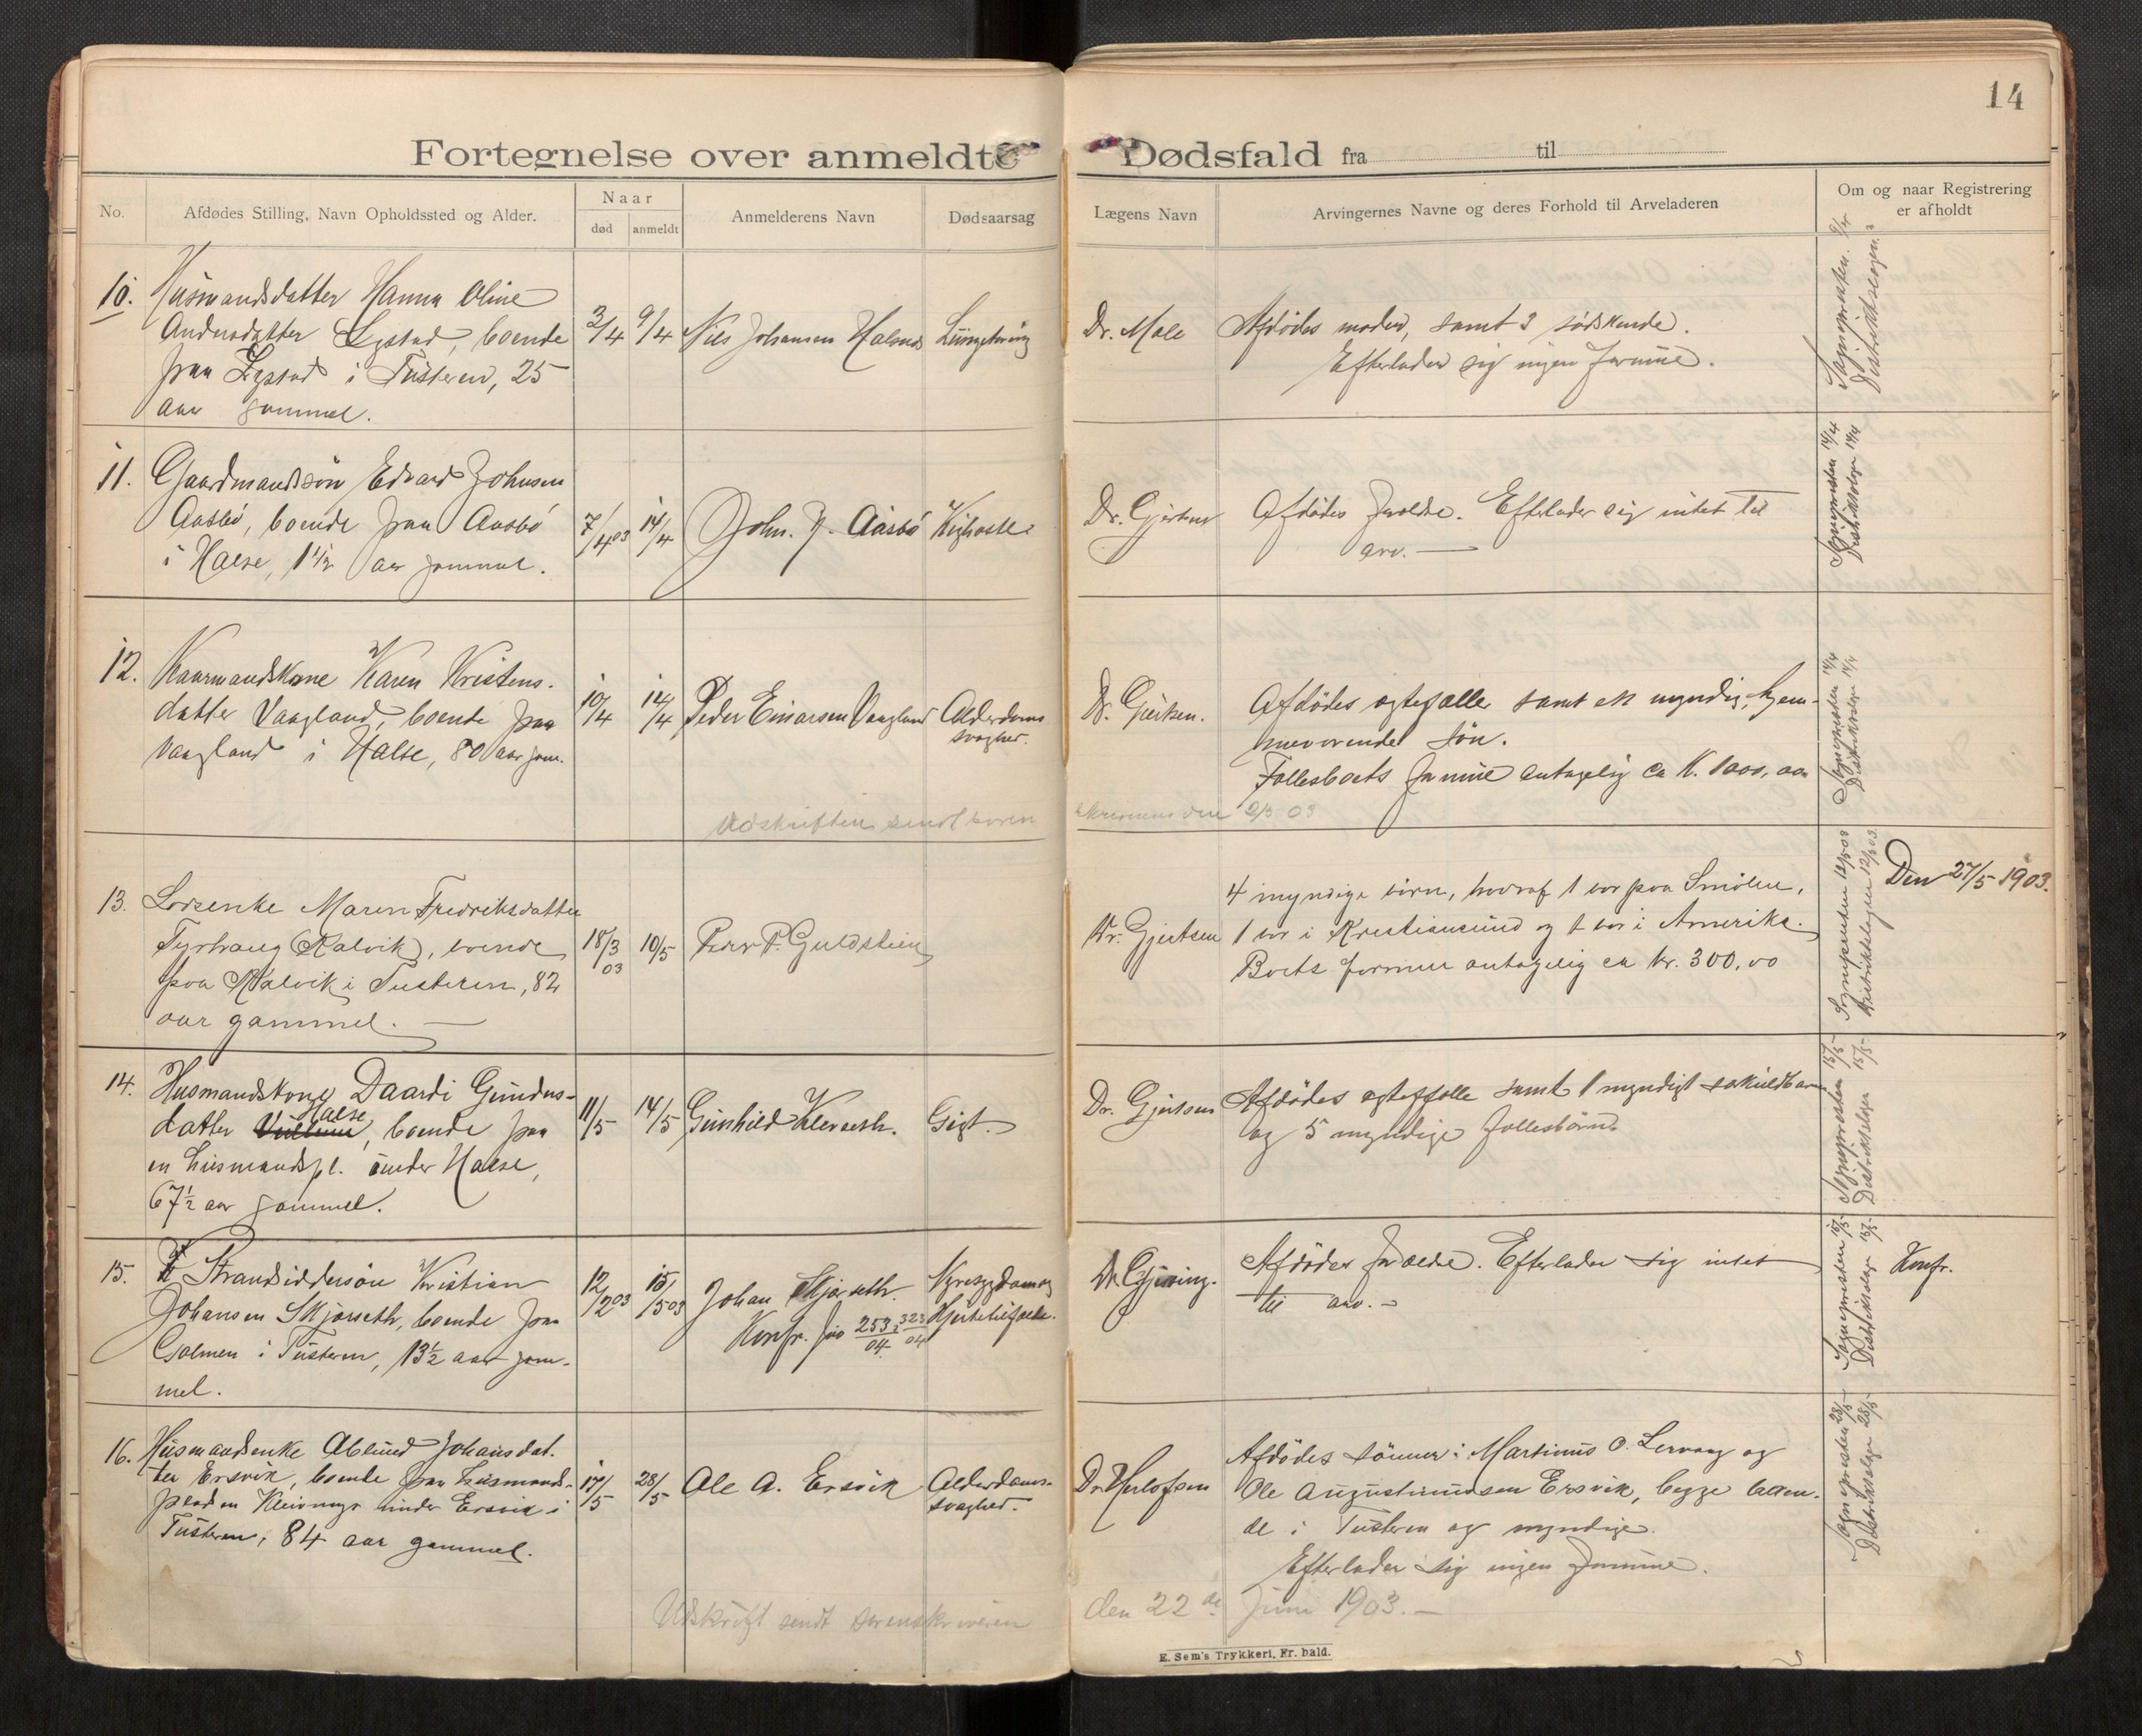 14
Fortegnelse over anmeldte Dødsfald fra til
No.
Afdødes Stilling, Navn Opholdssted og Alder.
Naar
død
anmeldt
Anmelderens Navn
Dødsaarsag
Lægens Navn
Arvingernes Navne og deres Forhold til Arveladeren
Om og naar Registrering
er afholdt
10. Husmandsdatter Hanna Oline
Andersdatter Lystad, boende
paa Lystad i Tusteren, 25
aar gammel.
3/4
9/4
Nils Johansen
Dr.
Afdødes moder, samt 3 södskende.
Efterlader sig ingen formue.
Sogneprsten
11. Gaardmandssön Edvard Johnsen
Aasbö, boende paa Aasbö
i Halse, 1 1/2 aar gammel.
7/4 03
14/4
John. J. Aasbö
Kighoste
Dr. Gjertsen
Afdödes foreldre. Efterlader sig intet til
arv.
Sognepresten 14/4
Distriktslæge 14/4
12. Kaarmandskone Karen Kristens-
datter Vaagland, boende paa
Vaagland i Halse, 80 aar gam.
10/4
14/4
Peder Einarsen Vaagland
Alderdoms
svaghed.
Dr. Gjertsen.
Afdödes egtefælle samt en myndig, hjem-
meværende sön.
Fællesboets formue antagelig ca K. 1000,00
Sognepresten 14/4
Distriktslæge 14/4
Udskriften sendt soren
skriveren den 2/5 03
13. Losenke Maren Fredriksdatter
Tyrhaug (Kalvik), boende
paa Kalvik i Tusteren, 82
aar gammel.
18/3
03
10/5
Peder P. Guldstein
Dr. Gjertsen
4 myndige börn, hvoraf 1 bor paa Smölen,
1 bor i Kristiansund og 1 bor i Amerika.
Boets formue antagelig ca kr. 300,00
Sognepresten 12/5 03
Distriktslægen 12/5 03.
Den 27/5 1903.
14. Husmandskone Daardi Gundes-
Halse
datter boende paa
en husmandspl. under Halse,
67 1/2 aar gammel.
11/5
14/5
Gunhild Kleveseth.
Gigt.
Dr. Gjertsen
Afdödes egtefælle samt 1 myndigt særkuldbarn
og 5 myndige fællesbörn.
Sognepresten 15/5
Distriktslægen 15/5
15. Strandsiddersön Kristian
Johansen Skjærseth, boende paa
Golmen i Tusteren, 13 1/2 aar gam-
mel.
12/2 03
15/5 03
Johan Skjærseth.
Konfr. jno 253/04, 323/04
Nyresygdom og
Hjertetilfælde.
Dr.
Afdödes foreldre. Efterlader sig intet
til arv. -
Sognepresten 15/5
Distriktslæge 15/5
Konfr.
16. Husmandsenke Ablund Johansdat-
ter Ersvik, boende paa husmands-
pladsen under Ersvik i
Tusteren, 84 aar gammel.
17/5
28/5
Ole A. Ersvik
Alderdoms-
svaghed.
Dr Herlofsen
Afdödes sönner: Martinus O. Lervaag og
Ole Augustinussen Ersvik, begge boen-
de i Tusteren og myndige.
Efterlader sig ingen formue.
Sognepresten 28/5
Distriktslæge 28/5
Udskrift sendt sorenskriveren
den 22de Juni 1903. -
E. Sem's Trykkeri, Fr. hald.